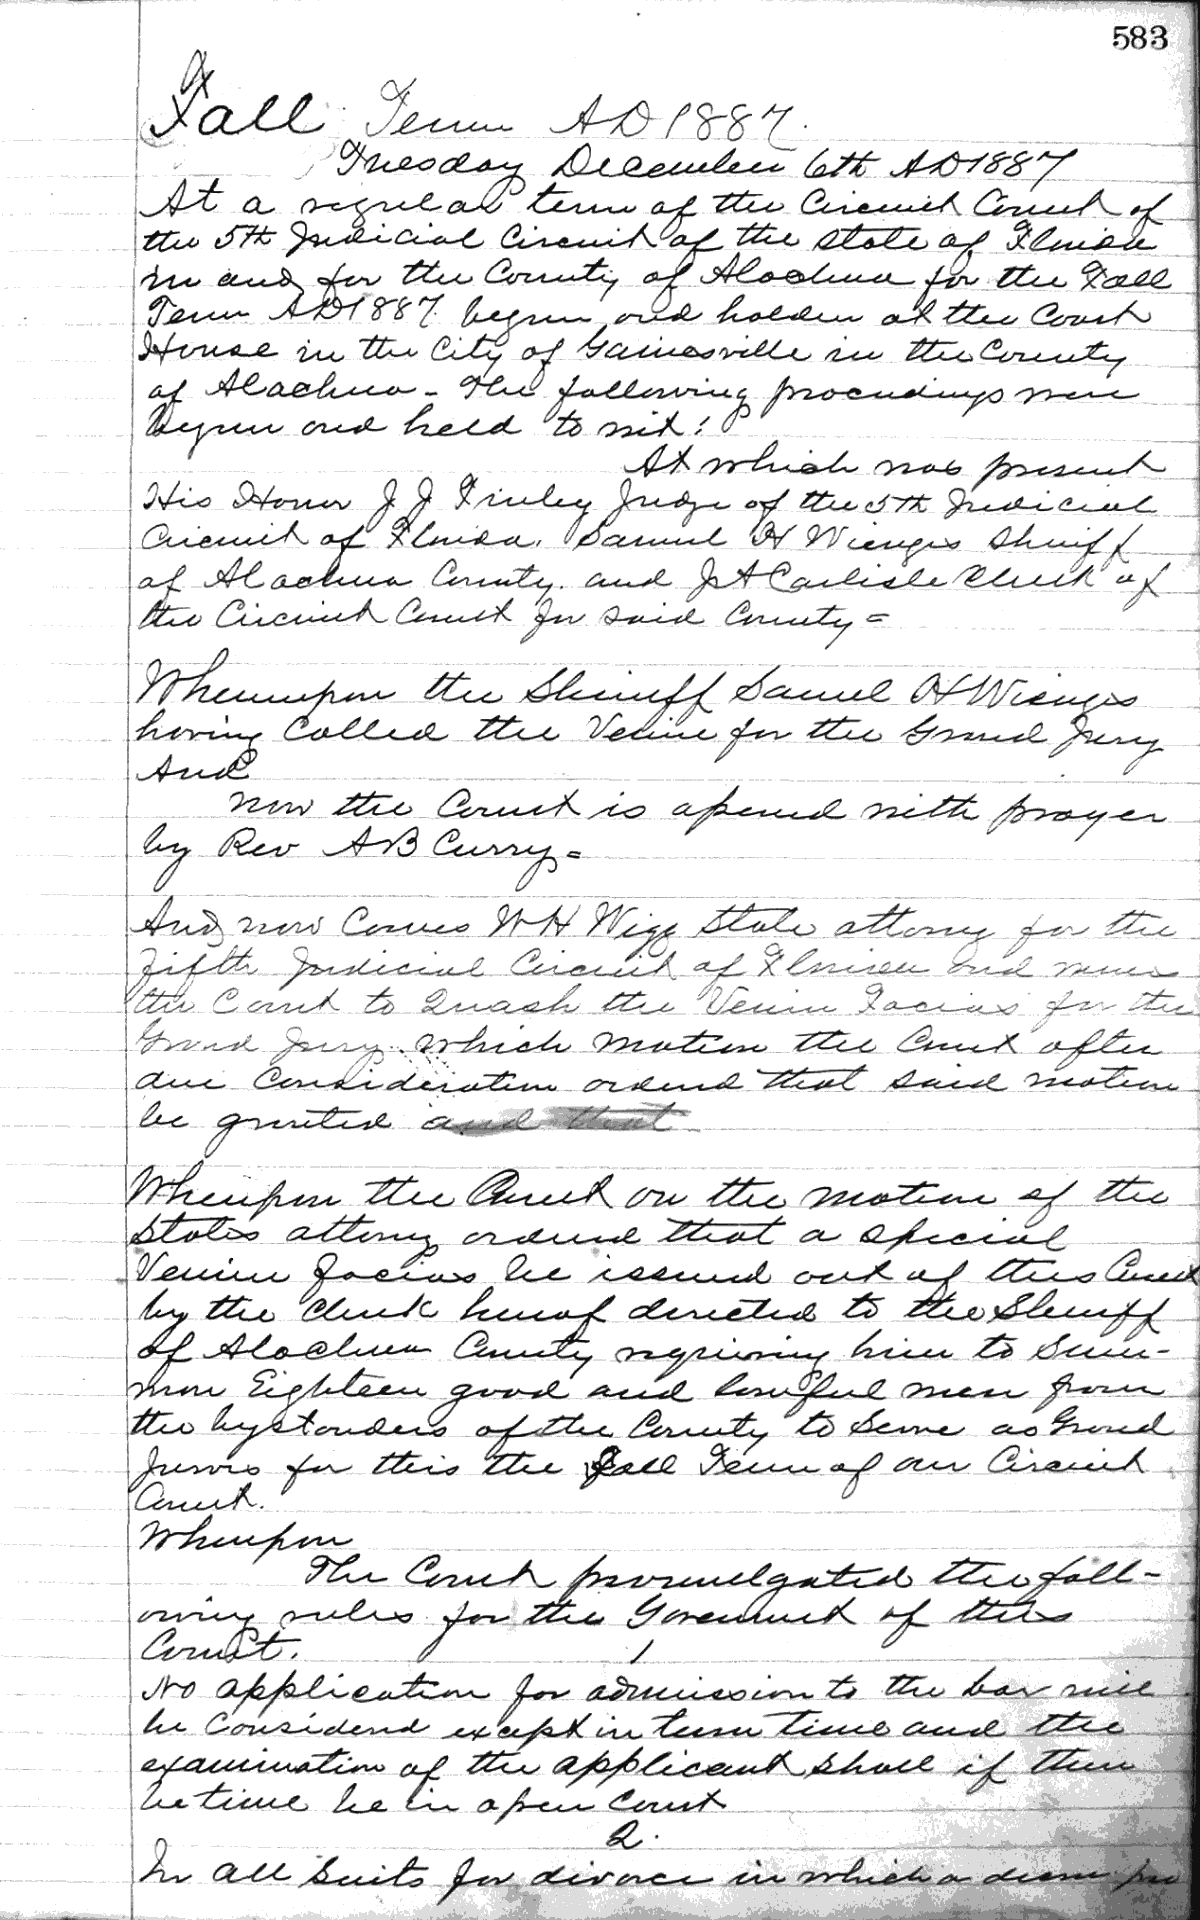 583
Fall Term AD 1887.
Tuesday December 6th AD 1887
At a regular term of the Circuit Court of
the 5th Judicial Circuit of the State of Florida
in and for the County of Alachua for the Fall
Term AD 1887. begun and holden at the Court
House in the City of Gainesville in the County
of Alachua - The following proceedings were
begun and held to wit:
At which was present
His Honor J J Finley Judge of the 5th Judicial
Circuit of Florida. Samuel H Wienges Sheriff
of Alachua County. and J A Carlisle Clerk of
the Circuit Court for said County =
Whereupon the Sheriff Samuel H Wienges
having Called the Venire for the Grand Jury
And
now the Court is opened with prayer
by Rev A B Curry =
And now Comes W H Wigg State attorney for the
Fifth Judicial Circuit of Florida and moves
the Court to Quash the Venire Facias for the
Grand Jury. which motion the Court after
due Consideration ordered that said motion
be granted and that
Whereupon the Court on the motion of the
States attorney ordered that a special
Venire facias be issued out of this Court
by the Clerk hereof directed to the Sheriff
of Alachua County requiring him to Sum-
mon Eighteen good and lawful men from
the bystanders of the County to Serve as Grand
Jurors for this the Fall Term of our Circuit
Court.
Whereupon
The Court promulgated the foll-
owing rules for the Government of this
Court.
1
No application for admission to the bar will
be Considered except in term time and the
examination of the applicant shall if there
be time be in open Court
2.
In all Suits for divorce in which a decree pro